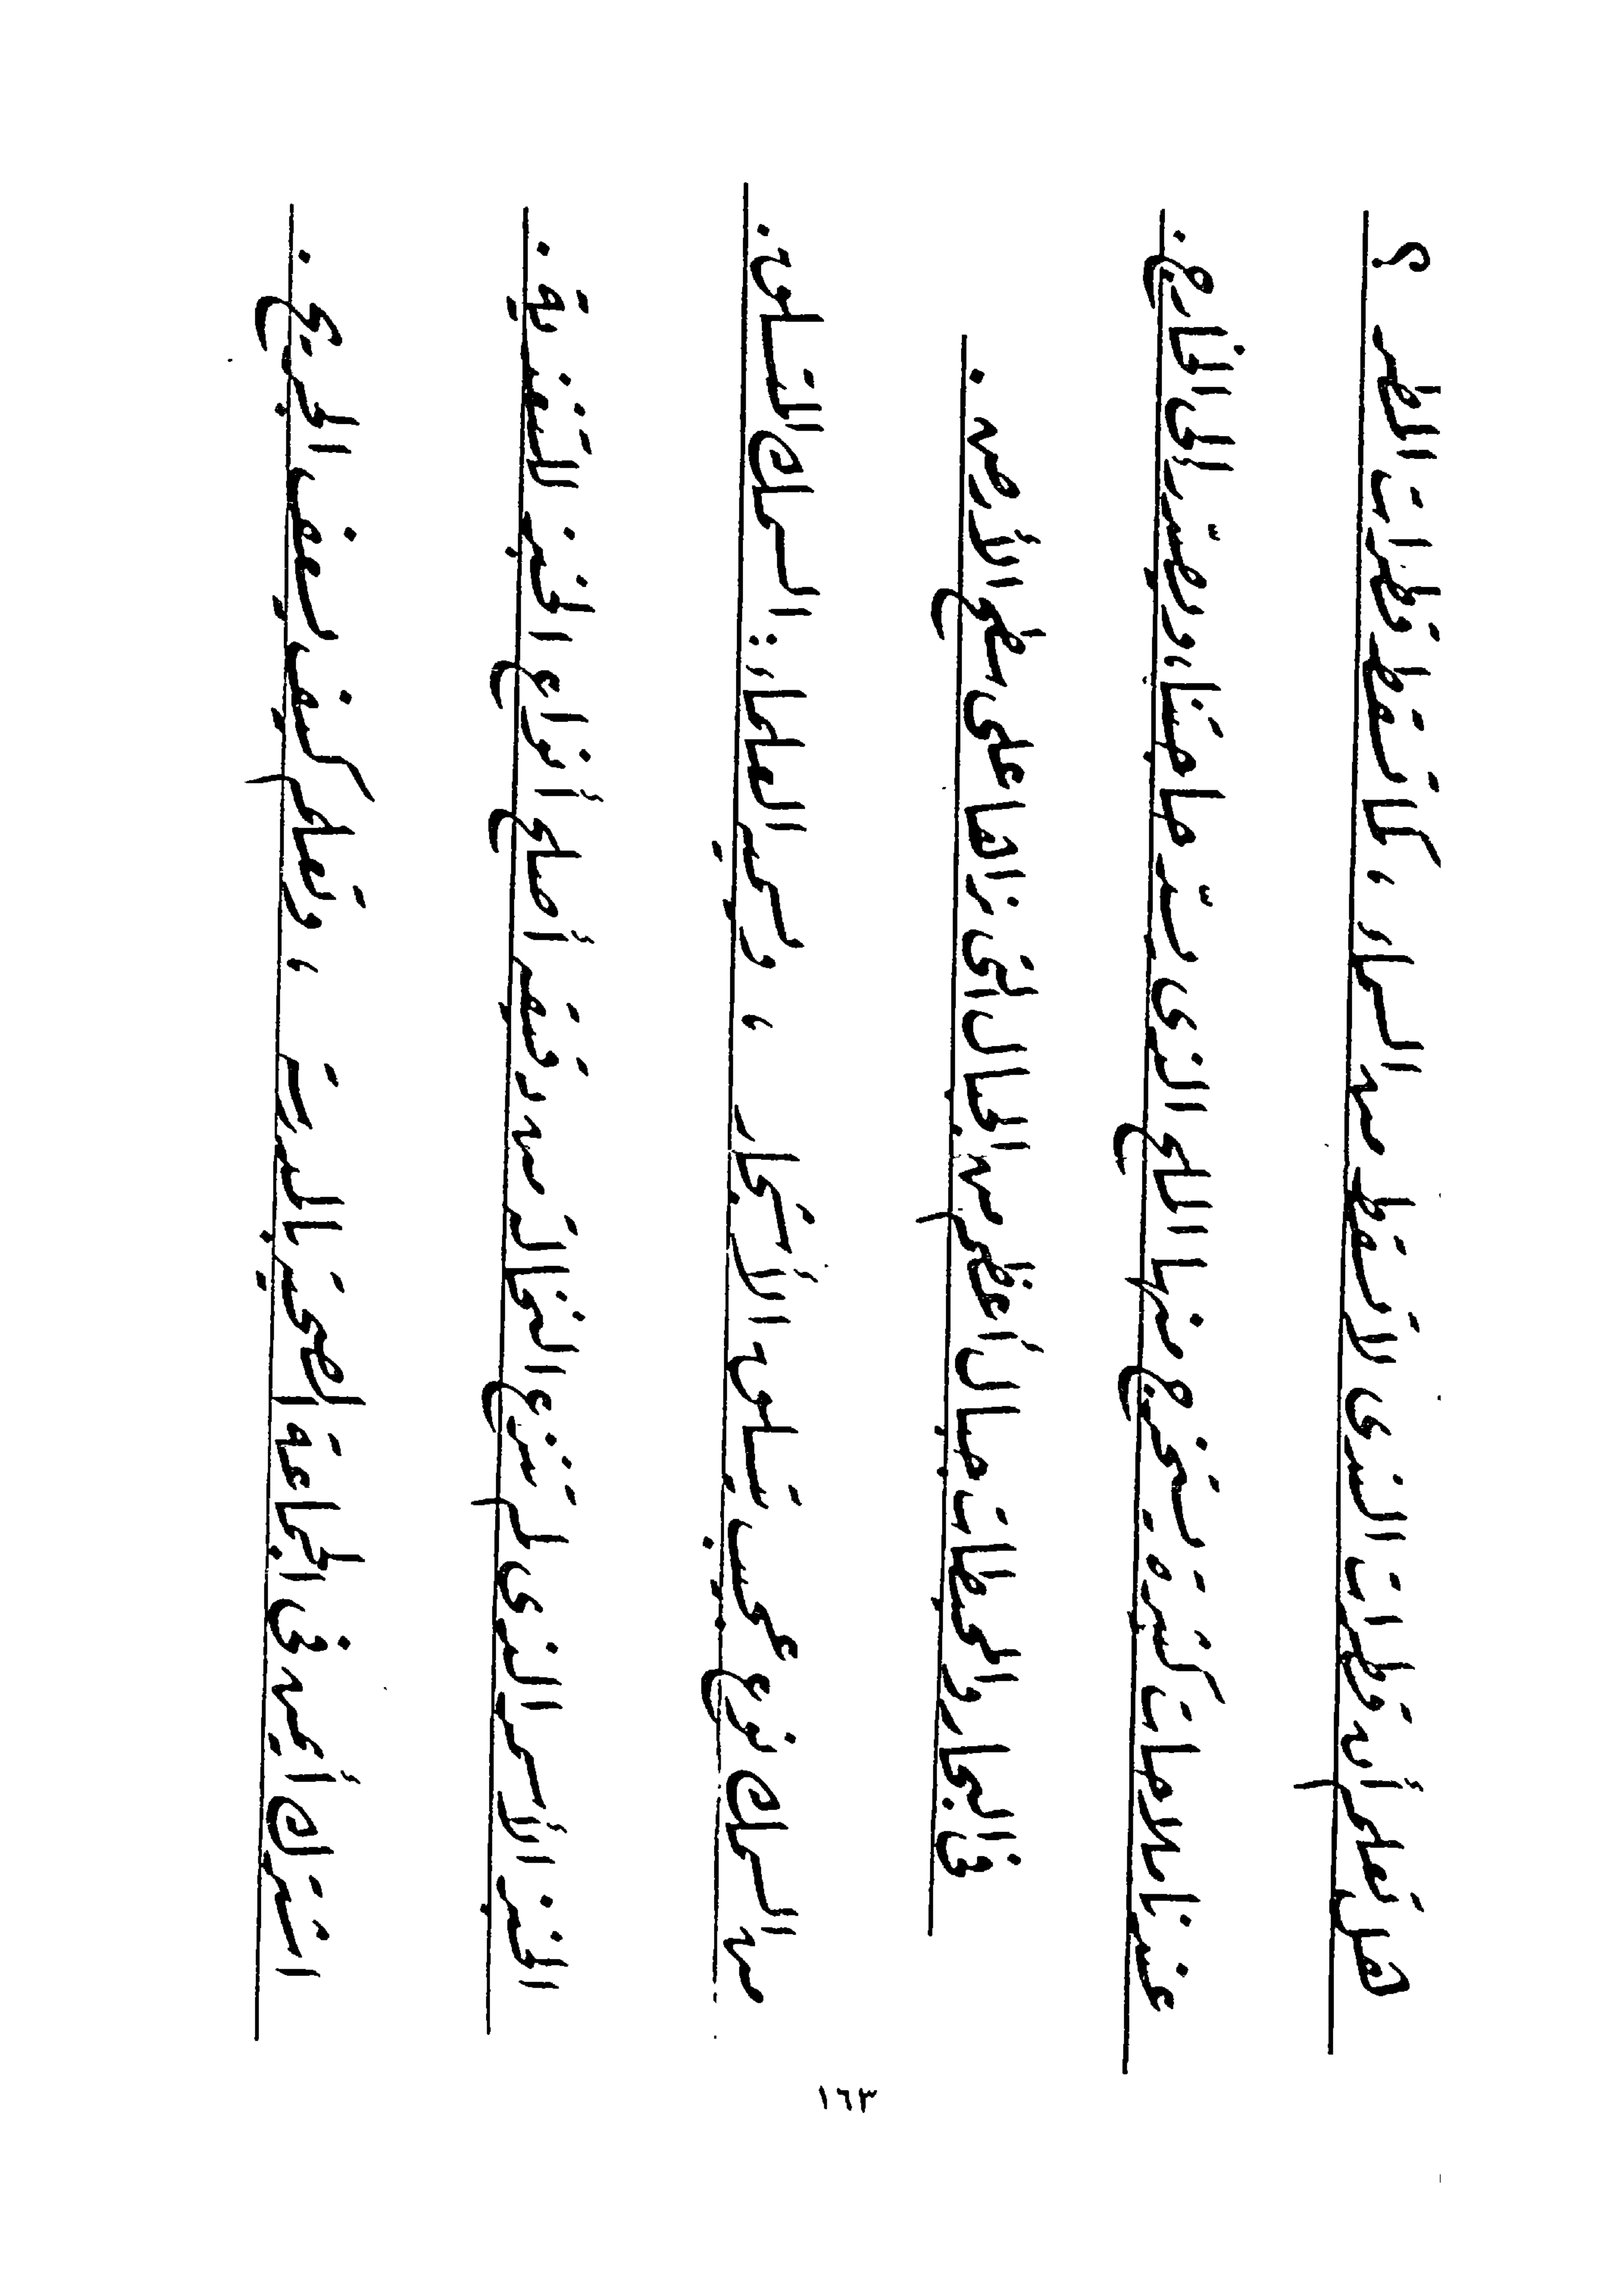 هل تعلم أن قطرات الندى لا تسقط من السماء ، كما تسقط قطرات المطر ؟
عندنا ملاحات كثيرة يستخرج منها الملح الذى يسد حاجتنا ، ويصدر إلى الخارج .
فى البحار والمحيطات جبال أعظم من الجبال التى نراها على سطح الأرض .
من السمك نوع عجيب يتسلق الأشجار ، ويسميه العلماء : السمك المتسلق .
الخبز الأسمر الذى لم تنزع النخالة من دقيقه أصلح أنواع الخبز للتغذية .
اشترك أيمن فى الجماعة الصحية بالمدرسة ، وتعلم كيف يسعف الجريح .
١٦٣